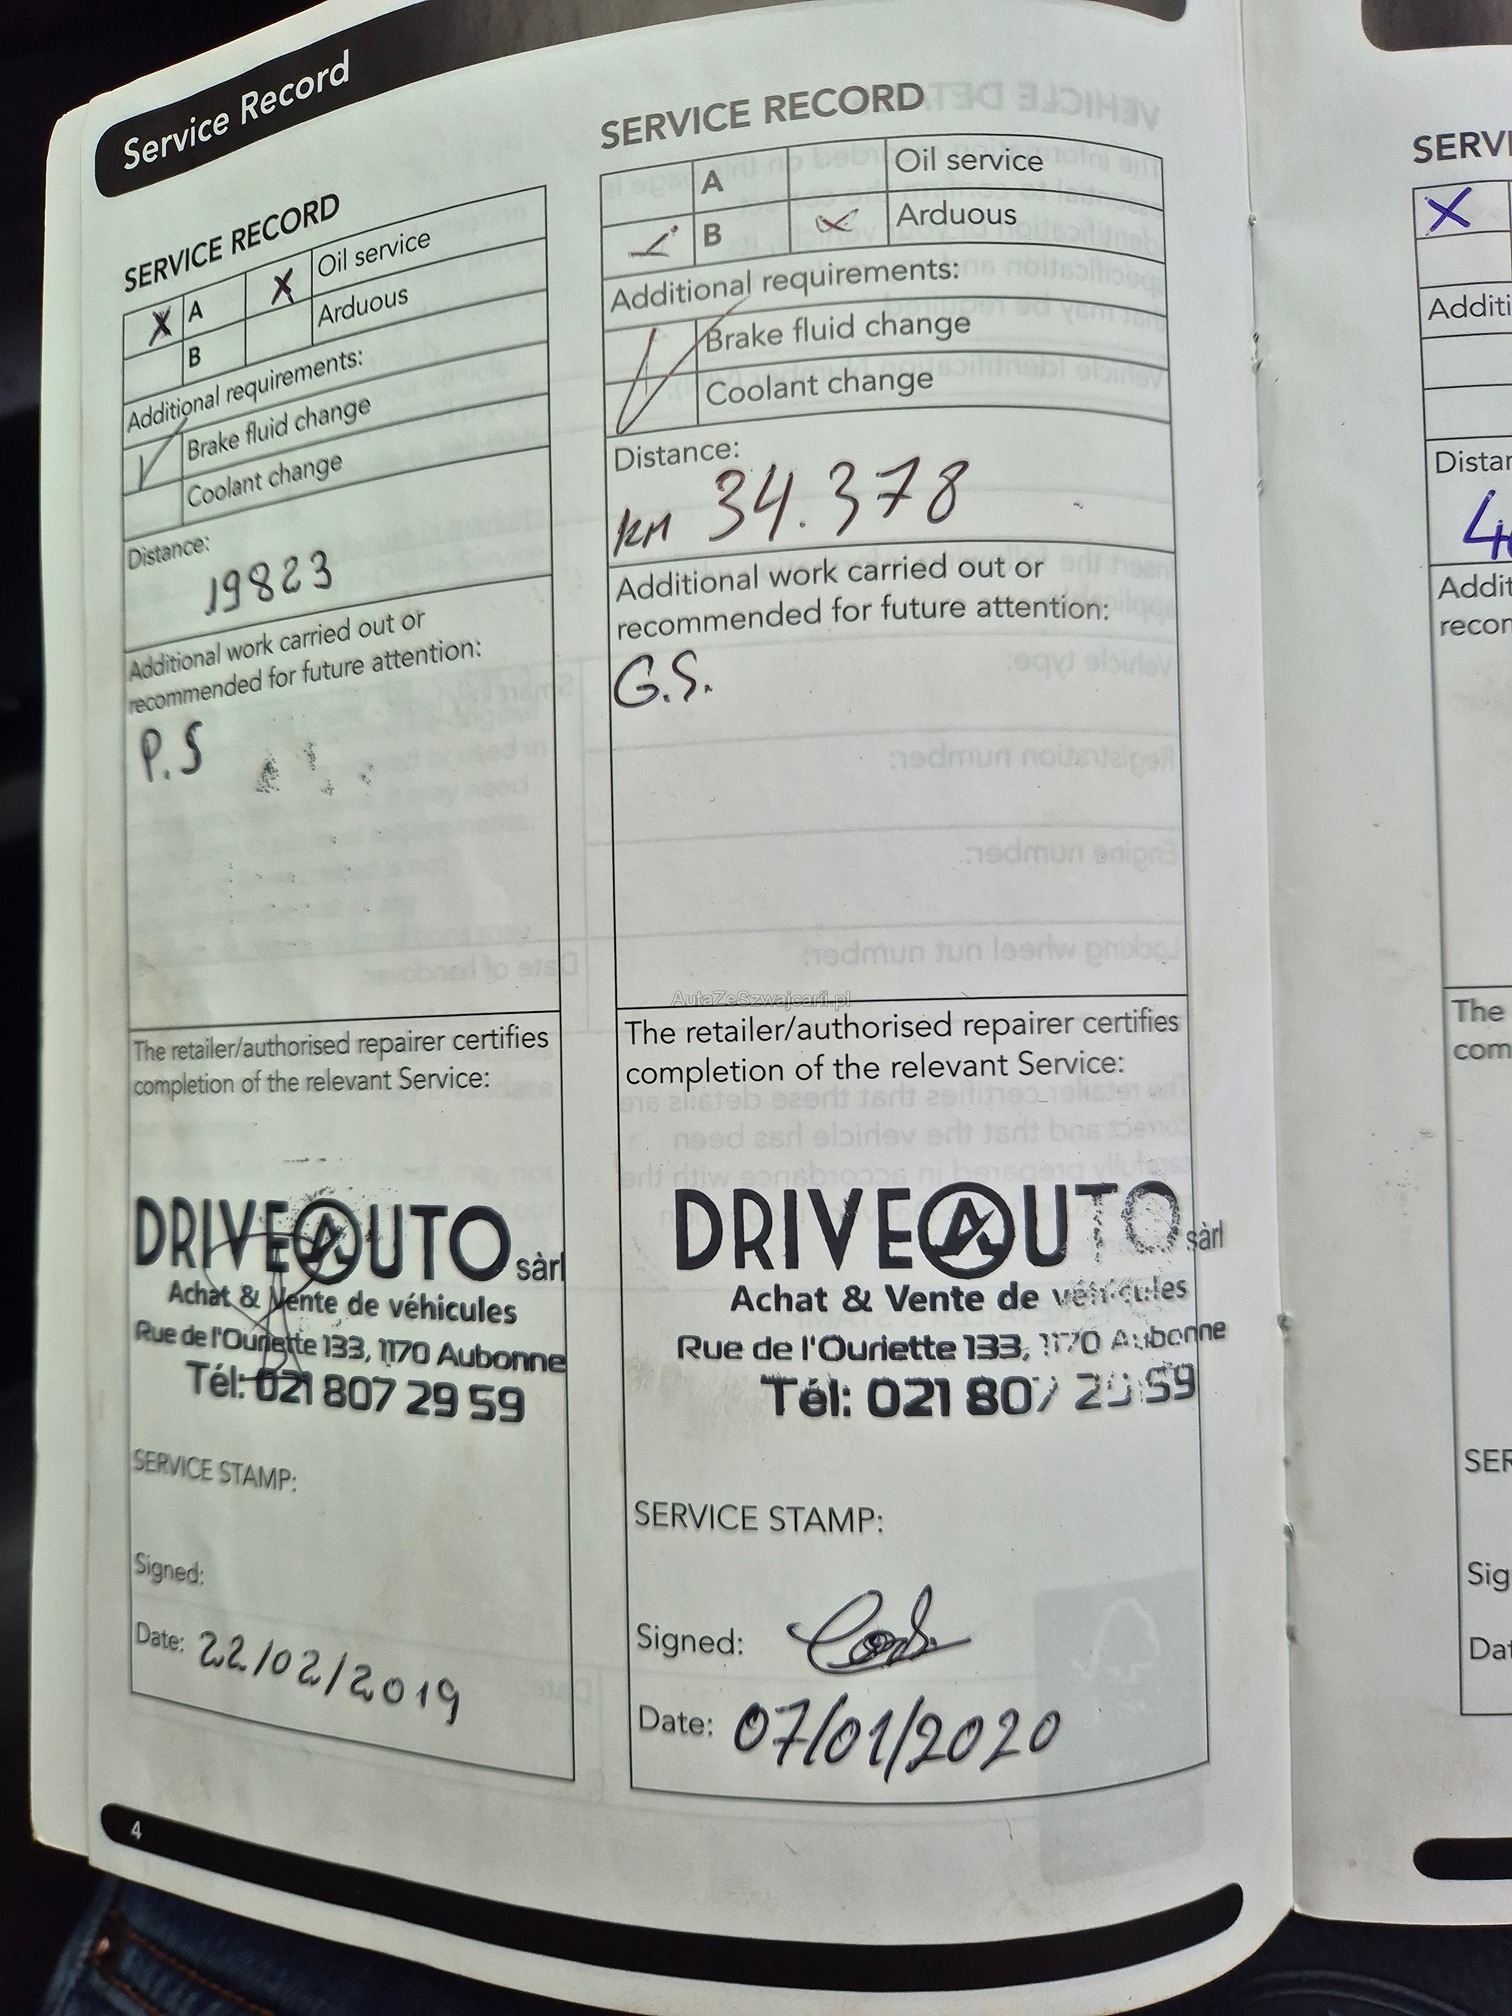 Service Record
SERVICE RECORD
X A X Oil service
B Arduous
Additional requirements:
Brake fluid change
Coolant change
Distance:
19823
Additional work carried out or
recommended for future attention:
P.S
The retailer/authorised repairer certifies
completion of the relevant Service:
DRIVEAUTO sàrl
Achat & Vente de véhicules
Rue de l'Ouriette 133, 1170 Aubonne
Tél: 021 807 29 59
SERVICE STAMP:
Signed:
Date: 22/02/2019
4
SERVICE RECORD
A Oil service
B Arduous
Additional requirements:
Brake fluid change
Coolant change
Distance:
km 34.378
Additional work carried out or
recommended for future attention:
G.S.
AutaZeSzwajcarii.pl
The retailer/authorised repairer certifies
completion of the relevant Service:
DRIVEAUTO sàrl
Achat & Vente de véhicules
Rue de l'Ouriette 133, 1170 Aubonne
Tél: 021 807 29 59
SERVICE STAMP:
Signed:
Date: 07/01/2020
SERVI
X
Additi
Distan
4
Addit
recon
The
com
SER
Sig
Dat